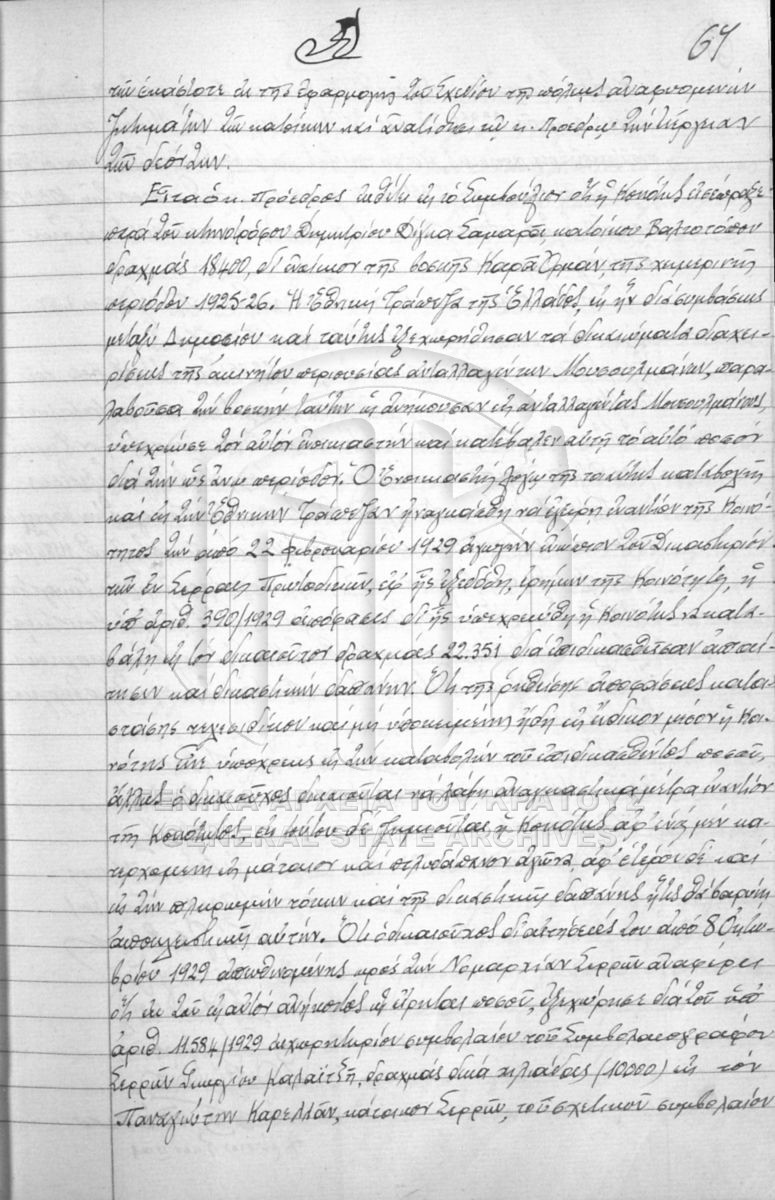 67
τῶν ἑκάστοτε ἐκ τῆς ἐφαρμογῆς τοῦ Σχεδίου τῆς πόλεως ἀναφυομένων
ζητημάτων τῶν κατοίκων καὶ ἀνατίθησι τῷ κ. Προέδρῳ τὴν ἐνέργειαν
τῶν δεόντων.
Εἶτα ὁ κ. Πρόεδρος ἐκθέτει εἰς τὸ Συμβούλιον ὅτι ἡ Κοινότης εἰσέπραξε
παρὰ τοῦ κτηνοτρόφου Δημητρίου Δίγκα Σαμαρᾶ, κατοίκου Βαλτοτόπου
δραχμάς 18400, δι' ἐνοίκιον τῆς βοσκῆς Καρᾶ Ὀρμάν τῆς χειμερινῆς
περιόδου 1925-26. Ἡ Ἐθνικὴ Τράπεζα τῆς Ἑλλάδος, εἰς ἣν διὰ συμβάσεως
μεταξὺ Δημοσίου καὶ ταύτης ἐξεχωρήθησαν τὰ δικαιώματα διαχει-
ρίσεως τῆς ἀκινήτου περιουσίας ἀνταλλαγέντων Μουσουλμάνων, παρα-
λαβοῦσα τὴν βοσκὴν ταύτην ὡς ἀνήκουσαν εἰς ἀνταλλαγέντας Μουσουλμάνους,
ὑπεχρέωσε τὸν αὐτὸν ἐνοικιαστὴν καὶ κατέβαλεν αὐτῇ τὸ αὐτὸ ποσὸν
διὰ τὴν ὡς ἄνω περίοδον. Ὁ ἐνοικιαστὴς λόγῳ τῆς τοιαύτης καταβολῆς
καὶ εἰς τὴν Ἐθνικὴν Τράπεζαν ἠναγκάσθη νὰ ἐγείρῃ ἐναντίον τῆς Κοινό-
τητος τὴν ἀπὸ 22 Φεβρουαρίου 1929 ἀγωγὴν ἐνώπιον τοῦ Δικαστηρίου
τῶν ἐν Σέρραις Πρωτοδικῶν, ἐφ' ἧς ἐξεδόθη, ἐρήμην τῆς Κοινότητος, ἡ
ὑπ' ἀριθ. 390/1929 ἀπόφασις δι' ἧς ὑπεχρεώθη ἡ Κοινότης νὰ κατα-
βάλῃ εἰς τὸν δικαιοῦχον δραχμάς 22.351 διὰ ἐπιδικασθεῖσαν ἀπαί-
τησιν καὶ δικαστικὴν δαπάνην. Ὅτι τῆς ῥηθείσης ἀποφάσεως κατα-
στάσης τελεσιδίκου καὶ μὴ ὑποκειμένης ἤδη εἰς ἔνδικον μέσον ἡ Κοι-
νότης εἶνε ὑπόχρεως εἰς τὴν καταβολὴν τοῦ ἐπιδικασθέντος ποσοῦ,
ἄλλως ὁ δικαιοῦχος δικαιοῦται νὰ λάβῃ ἀναγκαστικὰ μέτρα ἐναντίον
τῆς Κοινότητος, ἐκ τούτου δὲ ζημιοῦται ἡ Κοινότης ἀφ' ἑνὸς μὲν κα-
τερχομένη εἰς μάταιον καὶ πολυδάπανον ἀγῶνα, ἀφ' ἑτέρου δὲ καὶ
εἰς τὴν πληρωμὴν τόκων καὶ τῆς δικαστικῆς δαπάνης ἥτις θὰ βαρύνῃ
ἀποκλειστικῶς αὐτήν. Ὅτι ὁ δικαιοῦχος δι' αἰτήσεώς του ἀπὸ 8 Ὀκτω-
βρίου 1929 ἀπευθυνομένης πρὸς τὴν Νομαρχίαν Σερρῶν ἀναφέρει
ὅτι ἐκ τοῦ εἰς αὐτὸν ἀνήκοντος ὡς εἴρηται ποσοῦ, ἐξεχώρησε διὰ τοῦ ὑπ'
ἀριθ. 11.584/1929 ἐκχωρητηρίου συμβολαίου τοῦ Συμβολαιογράφου
Σερρῶν Γεωργίου Καλαϊτζῆ, δραχμὰς δέκα χιλιάδας (10000) εἰς τὸν
Παναγιώτην Καρελλᾶν, κάτοικον Σερρῶν, τοῦ σχετικοῦ συμβολαίου
ΓΕΝΙΚΑ ΑΡΧΕΙΑ ΤΟΥ ΚΡΑΤΟΥΣ
GENERAL STATE ARCHIVES